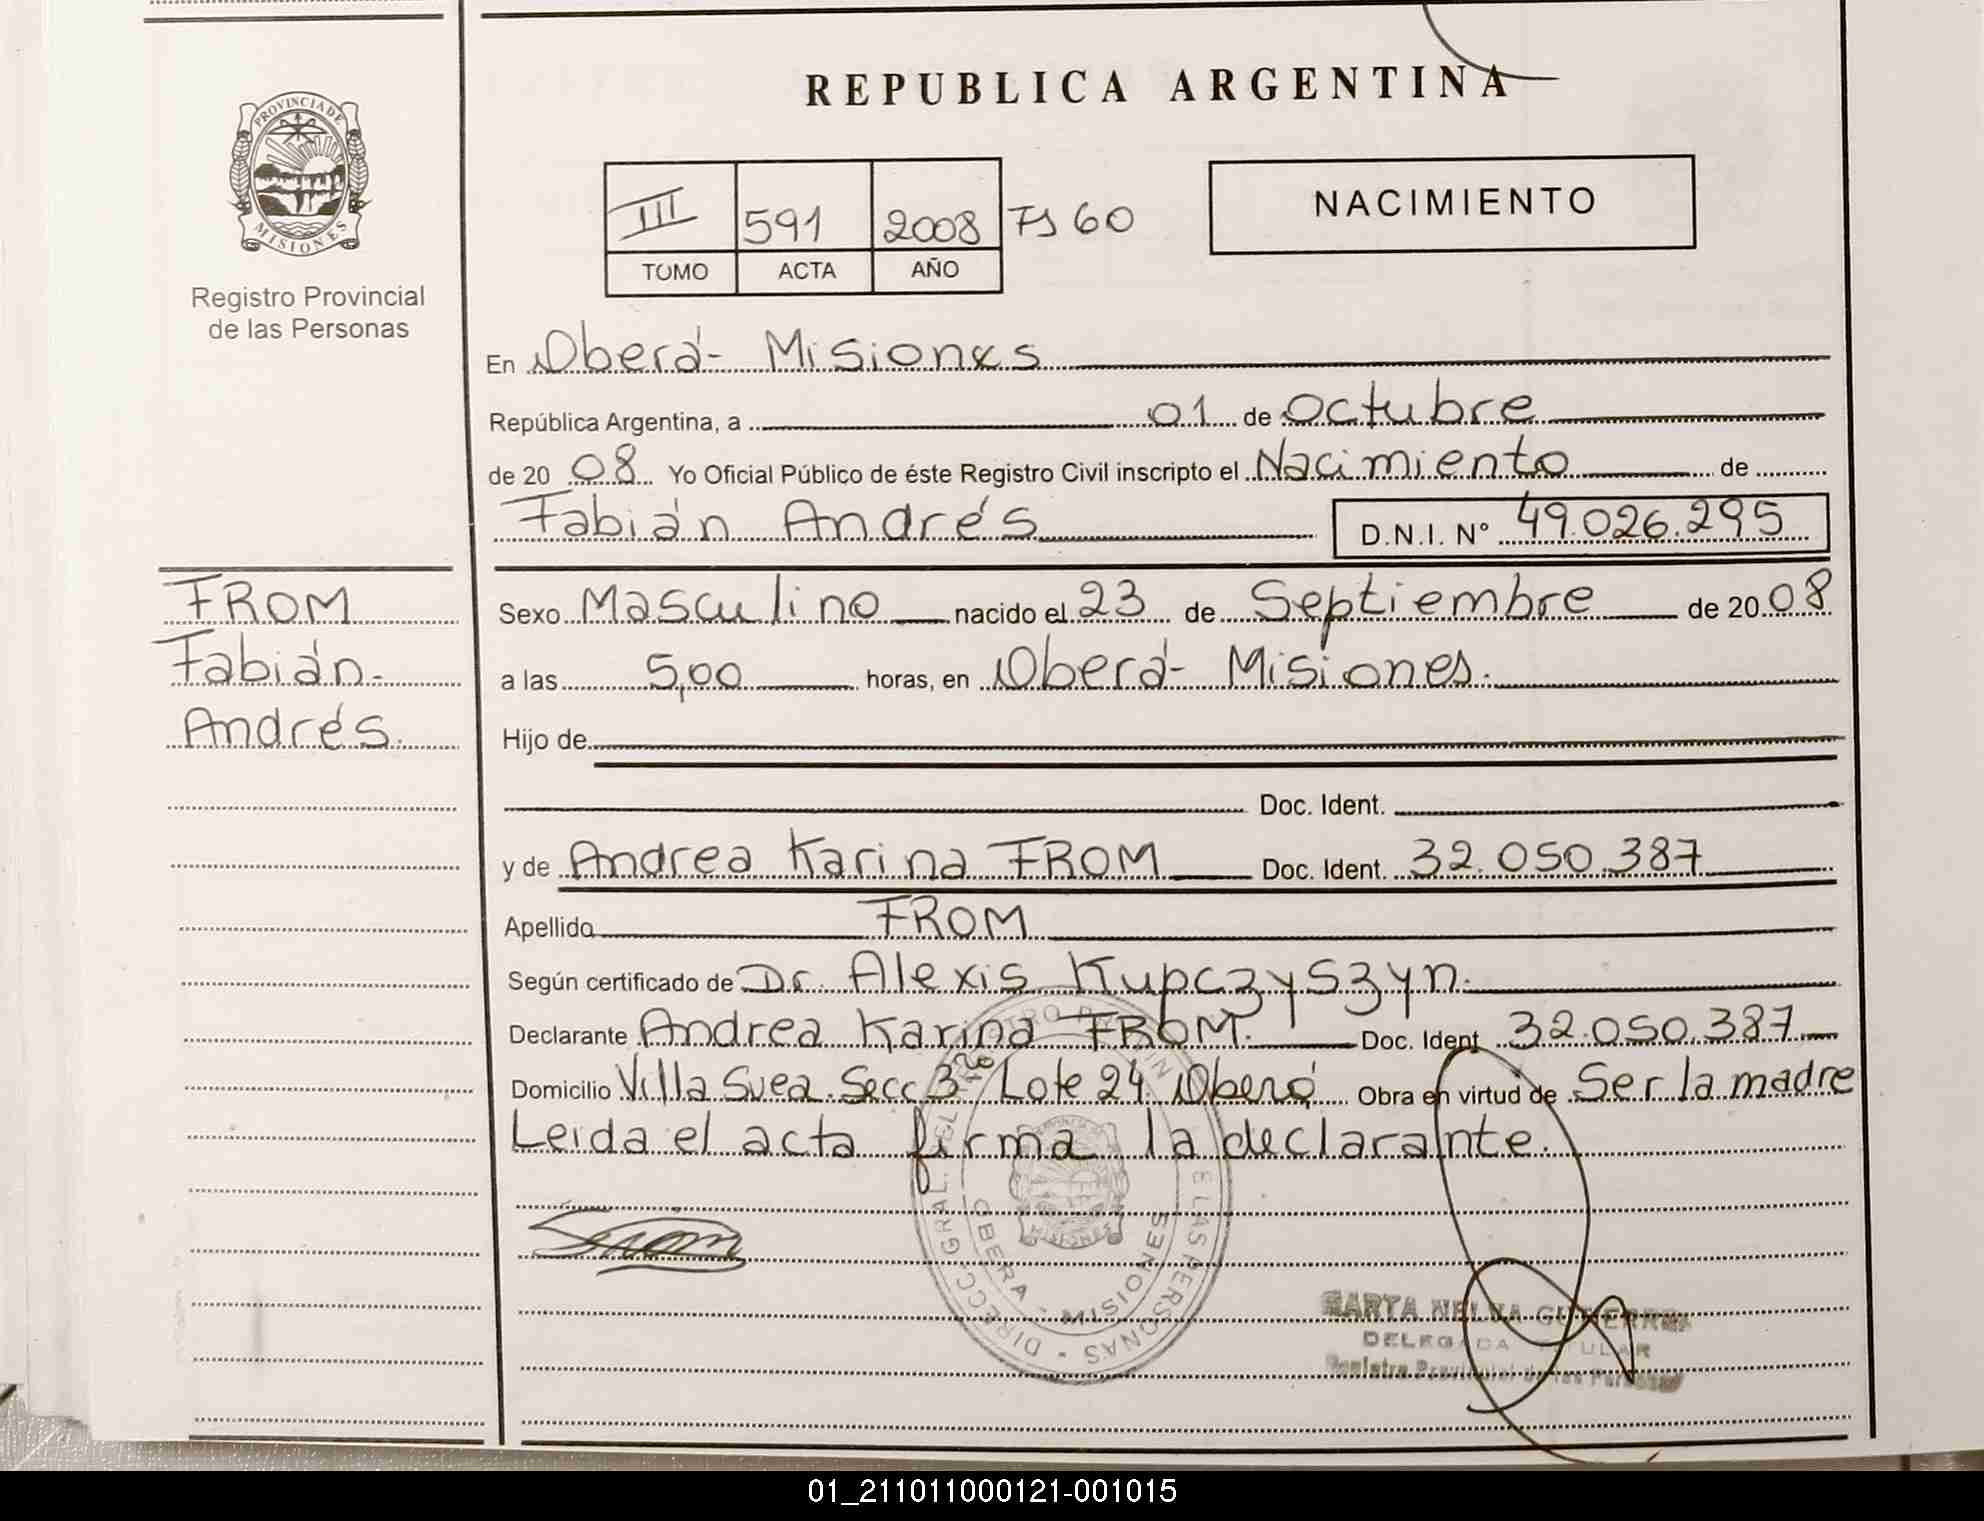 REPUBLICA ARGENTINA
PROVINCIA DE
MISIONES
Registro Provincial
de las Personas
III 591 2008 Fs 60
TOMO ACTA AÑO
NACIMIENTO
En Oberá- Misiones
República Argentina, a 01 de Octubre
de 20 08 Yo Oficial Público de éste Registro Civil inscripto el Nacimiento de
Fabián Andrés D.N.I. Nº 49.026.295
FROM
Fabián.
Andrés.
Sexo Masculino nacido el 23 de Septiembre de 20 08
a las 5,00 horas, en Oberá- Misiones.
Hijo de
Doc. Ident.
y de Andrea Karina FROM Doc. Ident. 32.050.387
Apellido FROM
Según certificado de Dr. Alexis Kupczyszyn.
Declarante Andrea Karina FROM. Doc. Ident 32.050.387
Domicilio Villa Svea. Secc 3ra Lote 24. Oberá Obra en virtud de Ser la madre
Leida el acta firma la declarante.
From
DIRECC. GRAL. DEL REGISTRO PROVINCIAL DE LAS PERSONAS
OBERA - MISIONES
MISIONES
MARTA NELVA GUTIERREZ
DELEGADA TITULAR
Registro Provincial de las Personas
01_211011000121-001015